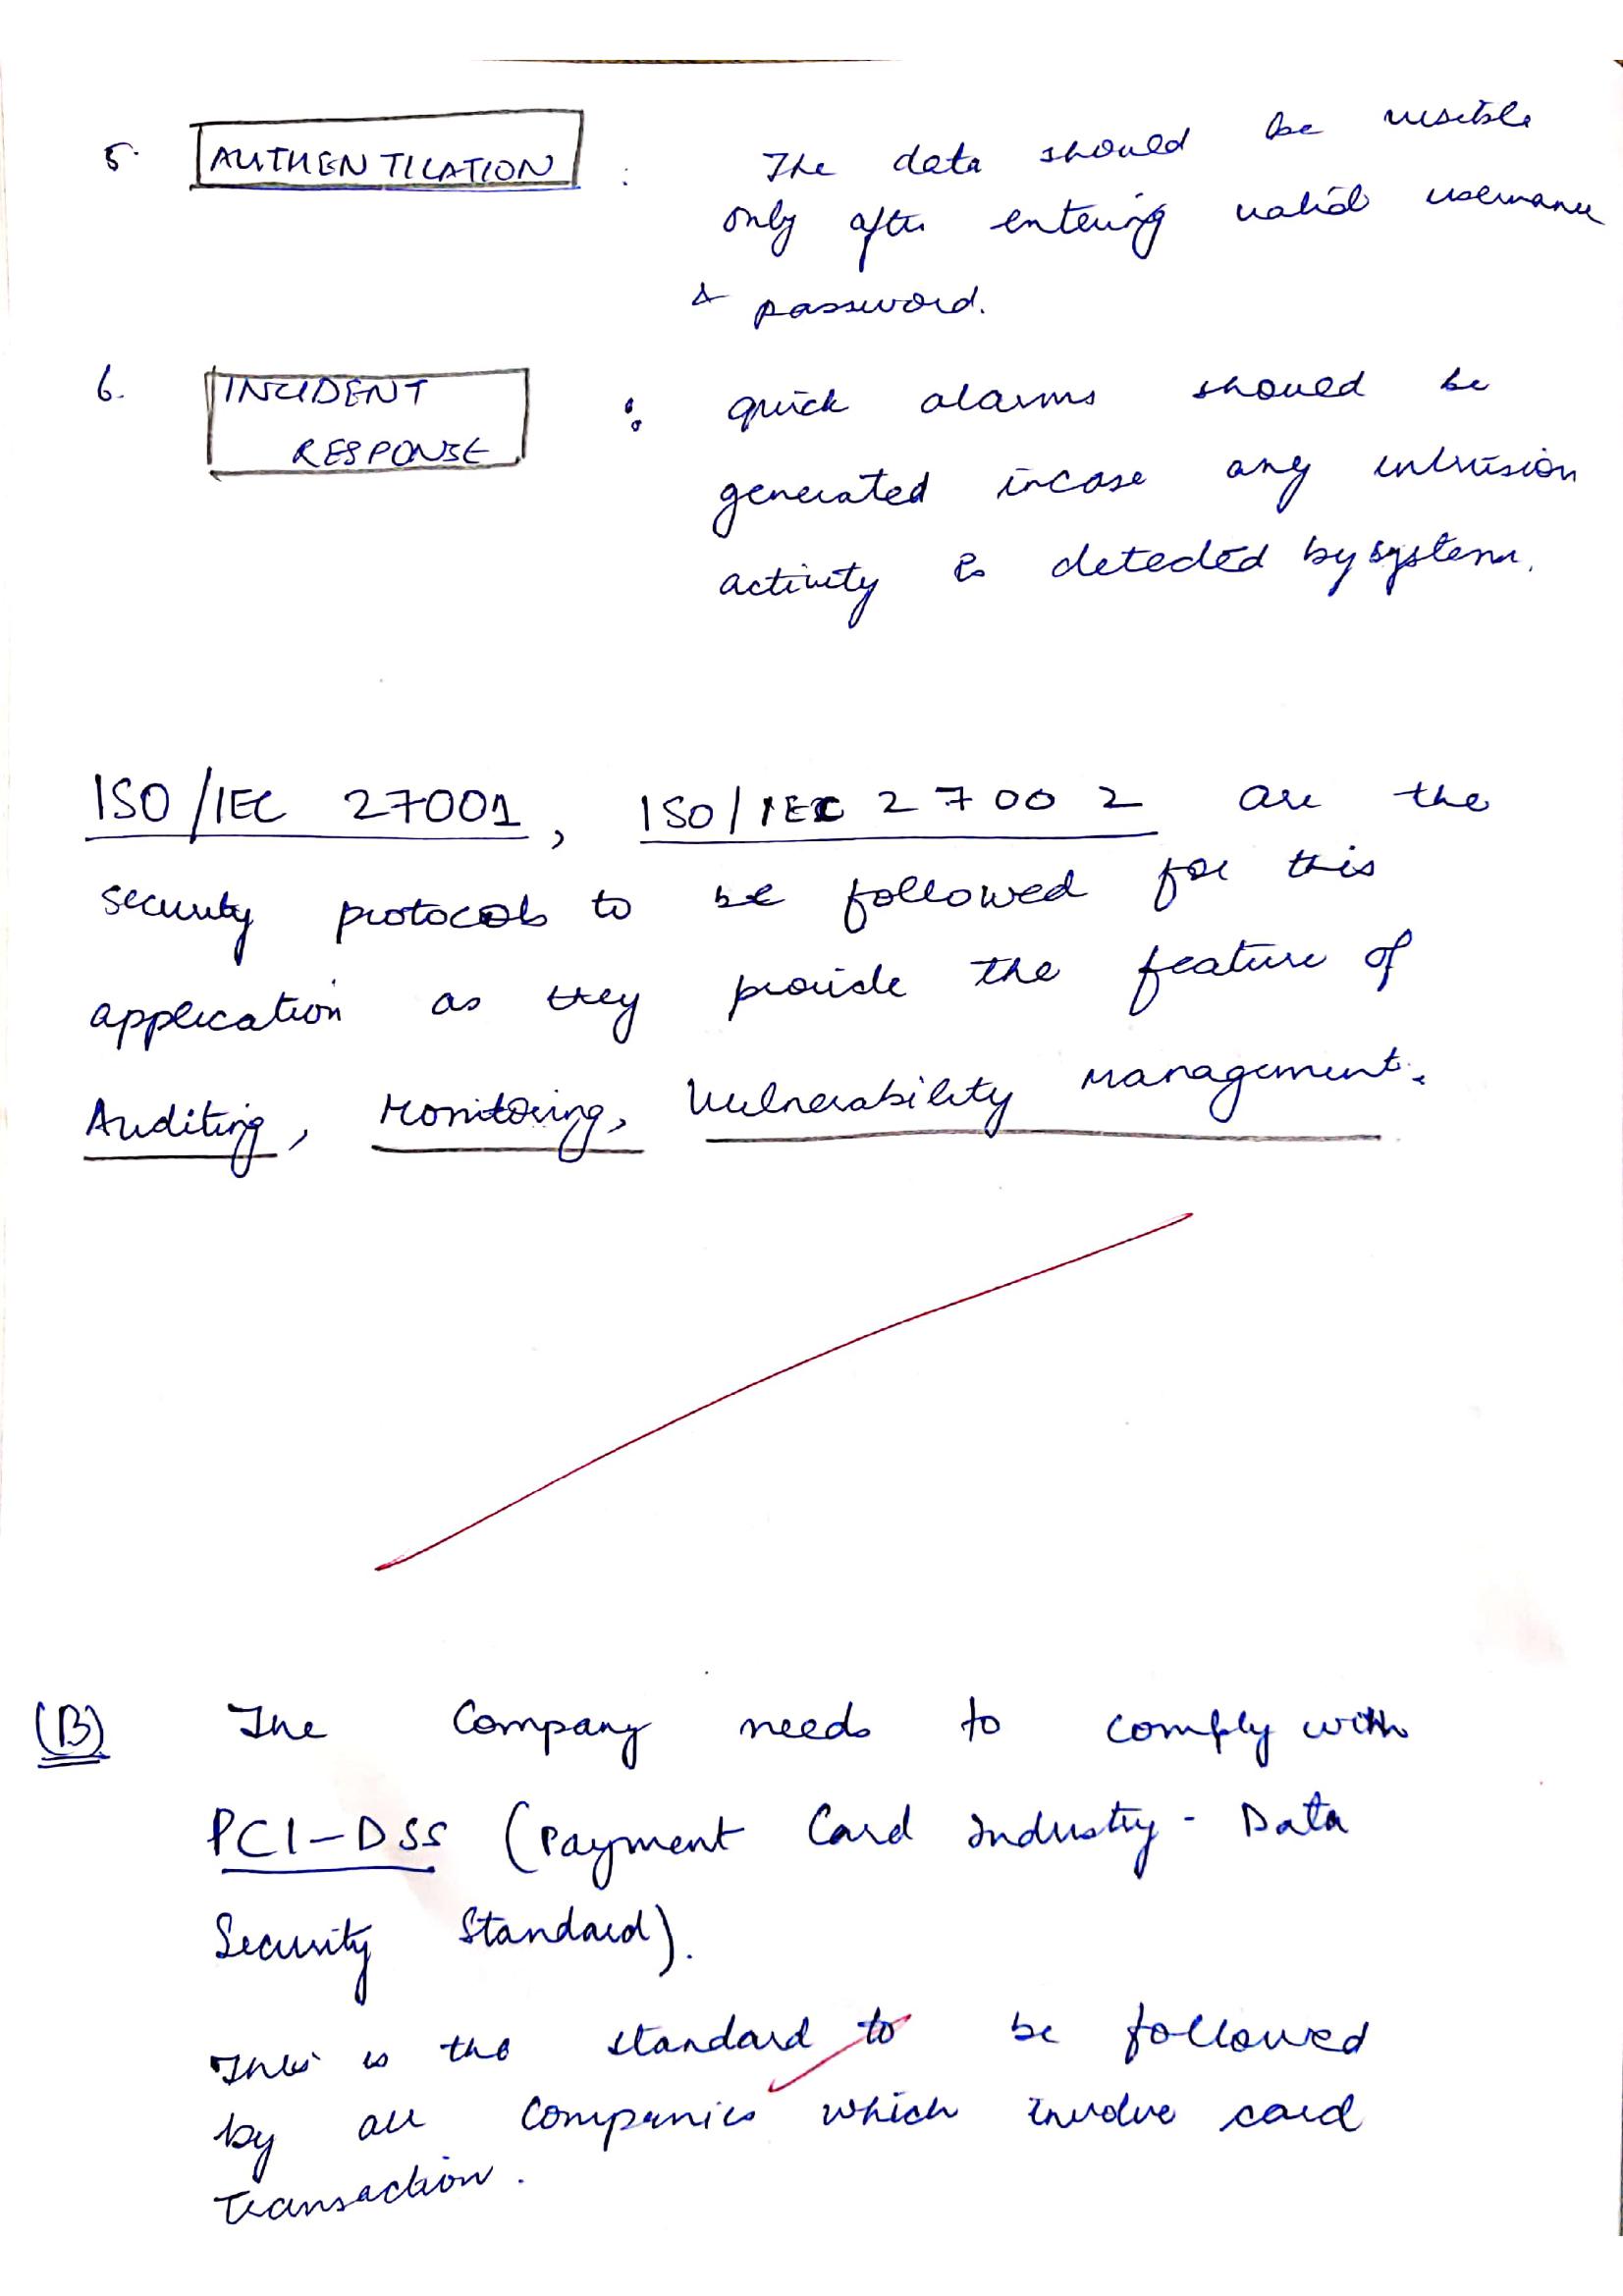 5. AUTHENTICATION : The data should be visible
only after entering valid username
& password.
6. INCIDENT
RESPONSE : quick alarms should be
generated incase any intrusion
activity is detected by system.
ISO/IEC 27001, ISO/IEC 27002 are the
security protocols to be followed for this
application as they provide the feature of
Auditing, Monitoring, Vulnerability Management.
(B) The Company needs to comply with
PCI-DSS (Payment Card Industry - Data
Security Standard).
This is the standard to be followed
by all Companies which involve card
Transaction.